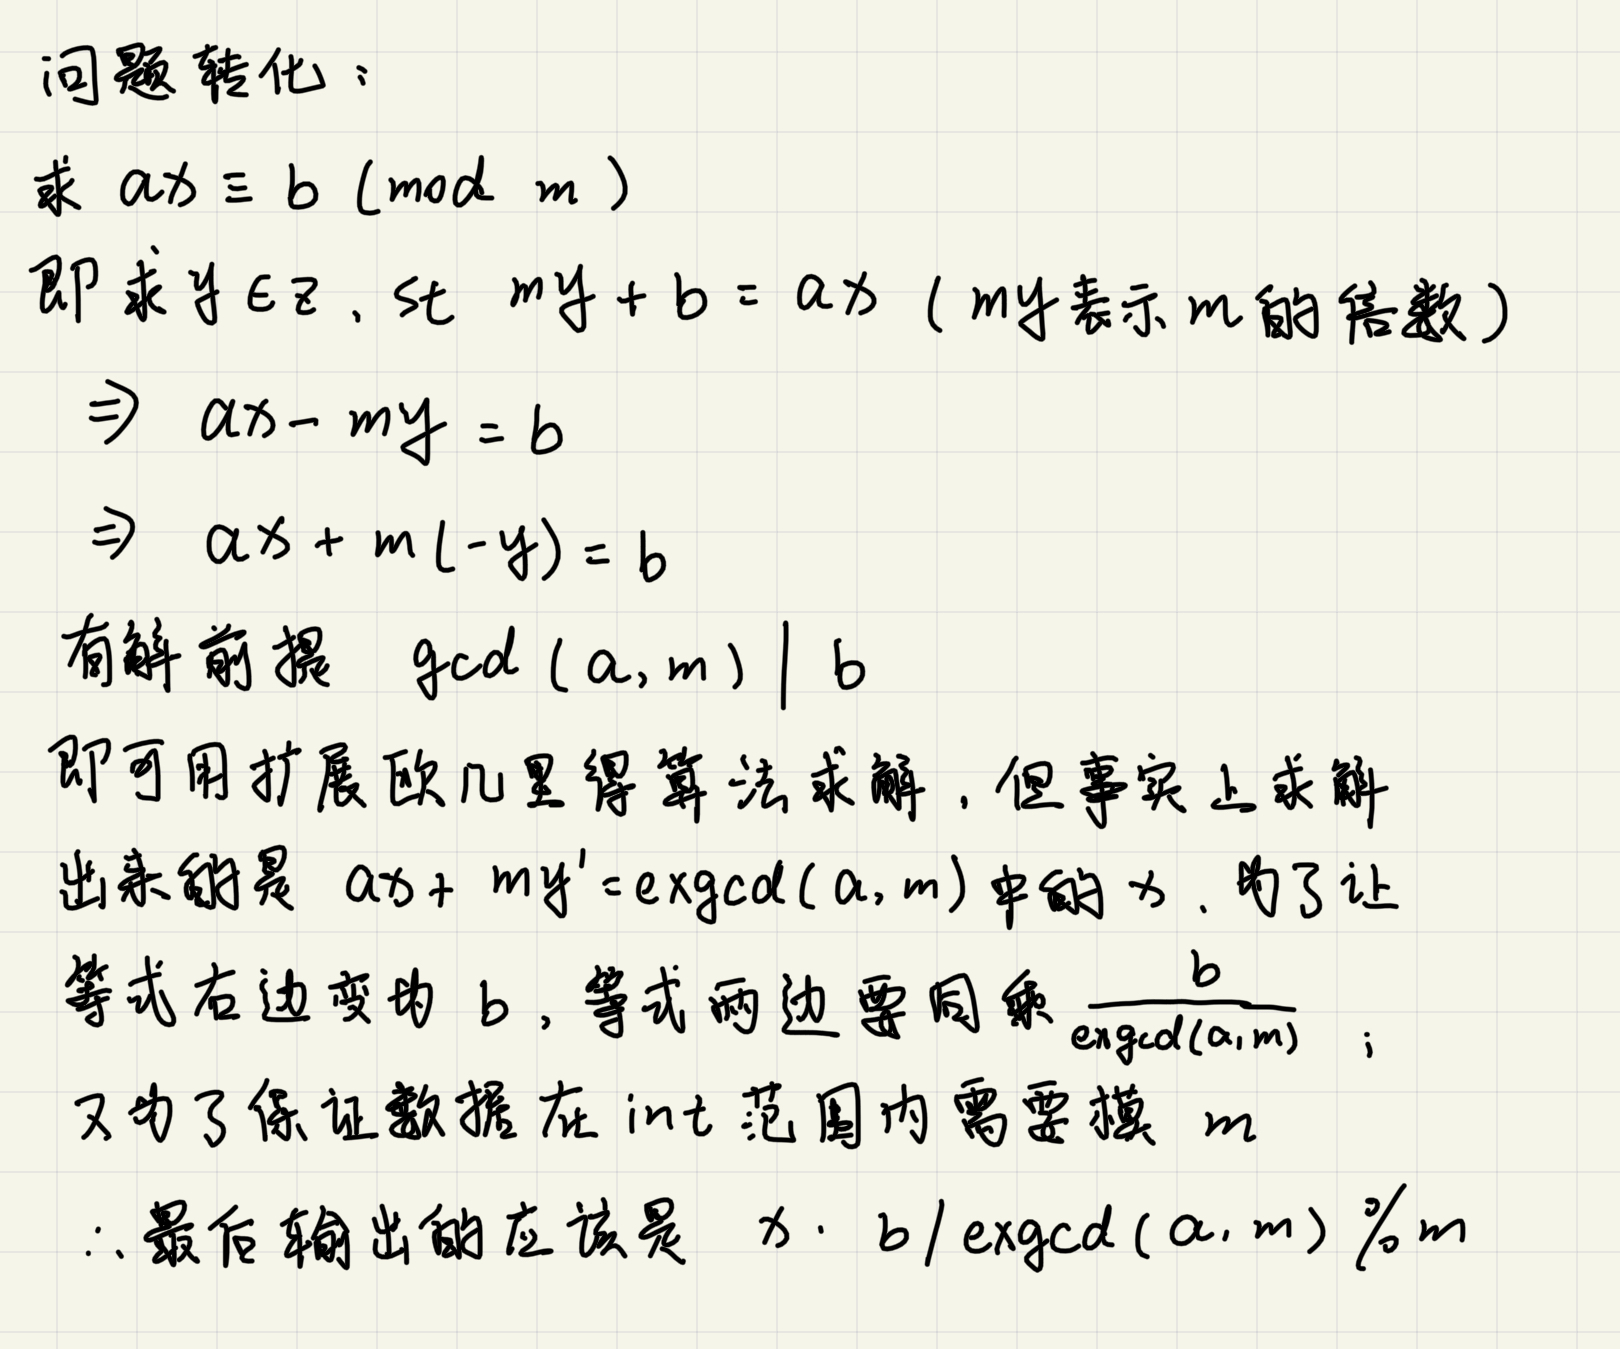 问题转化：
求 ax ≡ b (mod m)
即求 y ∈ Z, st my + b = ax (my表示m的倍数)
⇒ ax - my = b
⇒ ax + m(-y) = b
有解前提 gcd(a, m) | b
即可用扩展欧几里得算法求解，但事实上求解
出来的是 ax + my' = exgcd(a, m) 中的 x. 为了让
等式右边变为 b，等式两边要同乘 b/exgcd(a,m) ;
又为了保证数据在 int 范围内需要模 m
∴ 最后输出的应该是 x · b / exgcd(a, m) % m